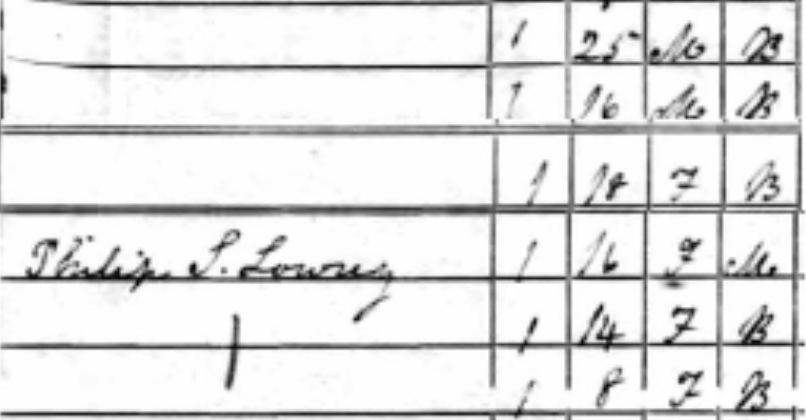 1 25 M B
1 16 M B
1 18 F B
Philip S. Lowrey 1 16 F M
1 14 F B
1 8 F B